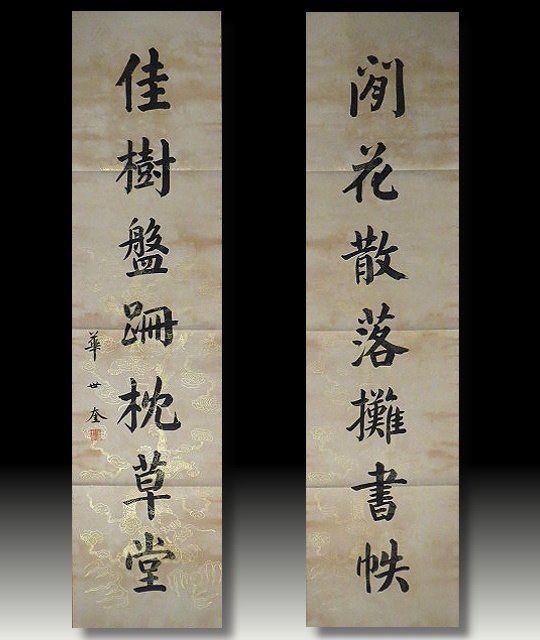 閒花散落攤書帙
佳樹盤跚枕草堂
華世奎